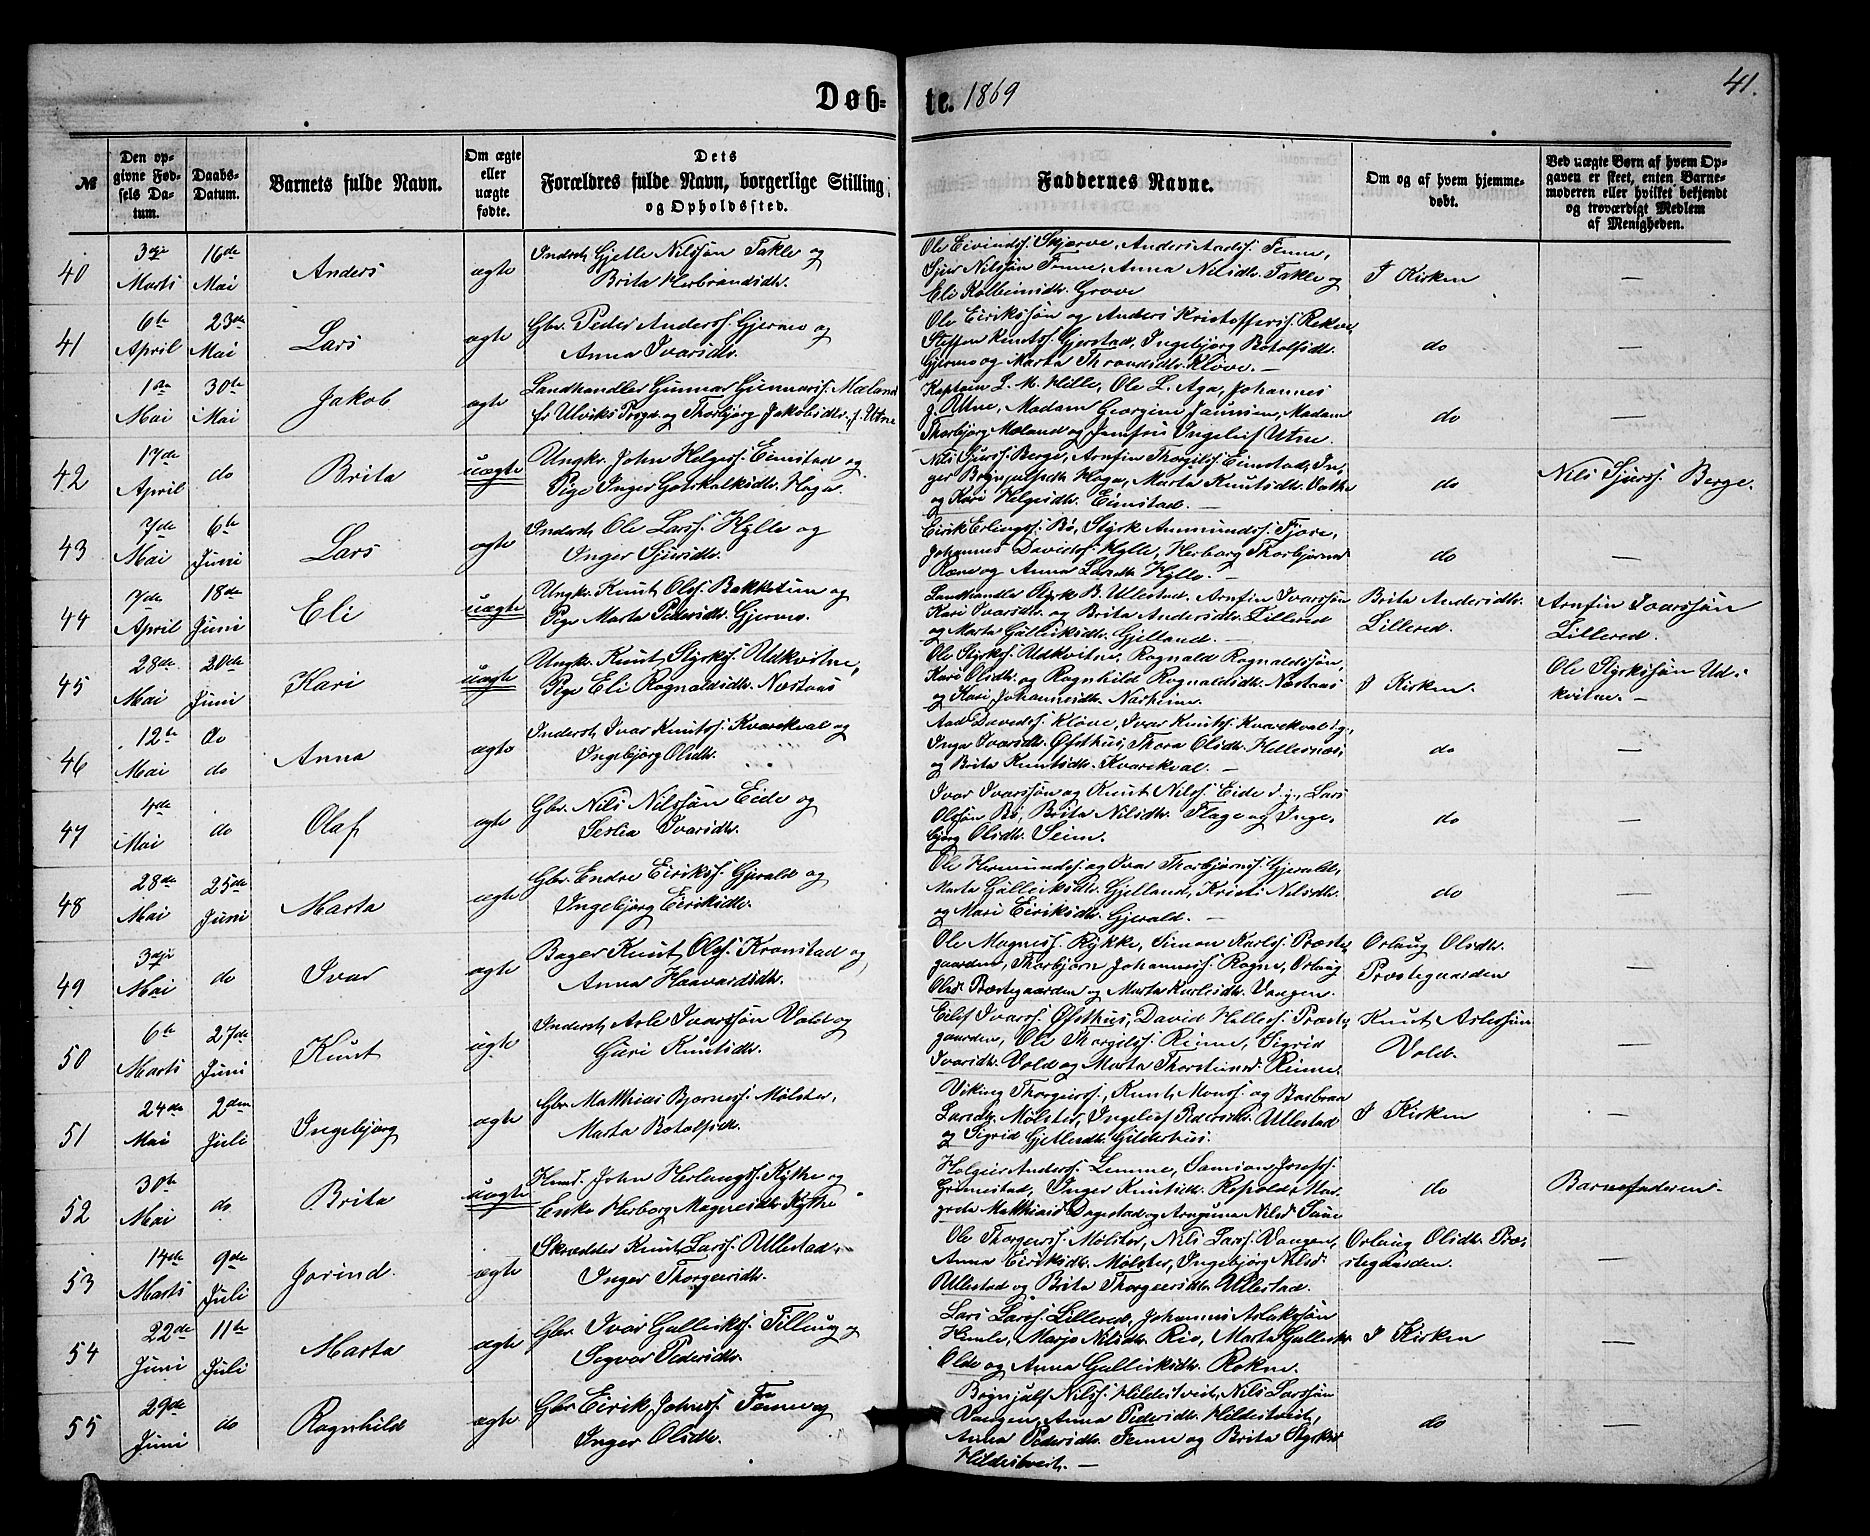 Døb-te. 1869
41.
№
Den opgivne Fødsels Datum.
Daabs-Datum.
Barnets fulde Navn.
Om ægte eller uægte fødte.
Dets Forældres fulde Navn, borgerlige Stilling og Opholdssted.
Faddernes Navne.
Om og af hvem hjemmedøbt.
Ved uægte Børn af hvem Opgaven er skeet, enten Barnemoderen eller hvilket bekjendt og troværdigt Medlem af Menigheden.
40 3die Marts 16de Mai Anders ægte
Inderst Gjetle Nilssøn Takle og
Brita Herbrandsdtr.
Ole Eivindss. Skjerve, Anders Aads. Fenne,
Sjur Nilssøn Fenne, Anna Nilsdtr. Takle og
Eli Kolbeinsdtr. Grove
I Kirken —
41 6te April 23de Mai Lars ægte
Gbr. Peder Anderss. Gjerno og
Anna Ivarsdtr.
Ole Eirikssøn og Anders Kristoffers. Rekve,
Steffen Knutss. Gjerstad, Ingebjørg Botolfsdtr.
Gjerno og Marta Throndsdtr. Kløve. —
do —
42 1de Mai 30te Mai Jakob ægte
Landhandler Gunnar Gunnarss. Mæland
fr Ulviks Prgd. og Thorbjørg Jakobsdtr. f. Utne
Kaptein L. M. Hille, Ole L. Aga, Johannes
J. Utne, Madam Georgine Jaunsen, Madam
Thorbjørg Mæland og Jomfru Ingelief Utne.
do —
42 17de April do Brita uægte
Ungkr. John Helgess. Eimstad og
Pige Inger Gotskalksdtr. Haga.
Nils Sjurss. Berge, Arnfin Thorgilss. Eimstad, In-
ger Brynjulfsdtr. Haga, Marta Knutsdtr. Vatle
og Kari Helgesdtr. Eimstad.
do Nils Sjurss. Berge.
43 7de Mai 6te Juni Lars ægte
Inderst Ole Larss. Hylle og
Inger Sjursdtr.
Eirik Erlingss. Bø, Styrk Ammundss. Fjore,
Johannes Davidss. Hylle, Herborg Thorbjørnsd.
Rene og Anna Larsdtr. Hylle. —
do —
44 7de April 18de Juni Eli uægte
Ungkr. Knut Olss. Bakketun og
Pige Marta Pedersdtr. Gjerno.
Landhandler Styrk B. Ullestad, Arnfin Ivarssøn
Kari Ivarsdtr. og Brita Andersdtr. Lillered
og Marta Gullieksdtr. Gjelland. —
Brita Andersdtr.
Lillered.
Arnfin Ivarssøn
Lillered.
45 28de Mai 20de Juni Kari uægte
Ungkr. Knut Styrkss. Udkvitne,
Pige Eli Rognaldsdtr. Næstaas
Ole Styrkss. Udkvitne, Rognald Rognaldssøn,
Kari Olsdtr. og Ragnhild Rognaldsdtr. Næstaas
og Kari Johannesdtr. Nasheim.
I Kirken.
Ole Styrkssøn Ud-
kvitne. —
46 12te Mai do do Anna ægte
Inderst Ivar Knutss. Kvarekval og
Ingebjørg Olsdtr.
Aad Davidss. Kløve, Ivar Knutss. Kvarekval yg.,
Inga Ivarsdtr. Øfsthus, Thora Olsdtr. Hellesnæs,
og Brita Knutsdtr. Kvarekval. —
do —
47 4de Mai do Olaf ægte
Gbr. Nils Nilssøn Eide og
Seslia Ivarsdtr.
Ivar Ivarssøn og Knut Nilss. Eide d. y., Lars
Olssøn Bø, Brita Nilsdtr. Flage og Inge-
bjørg Olsdtr. Seim.
do —
48 28de Mai 25de Juni Marta ægte
Gbr. Endre Eirikss. Gjerald og
Ingebjørg Eiriksdtr.
Ole Hermundss. og Ivar Thorbjørnss. Gjerald,
Marta Gullieksdtr. Gjelland, Kristi Nilsdtr.
og Mari Eiriksdtr. Gjerald. —
do —
49 3die Mai do Ivar ægte
Bager Knut Olss. Kronstad og
Anna Haavardsdtr.
Ole Magness. Rykke, Simon Karlss. Præste-
gaarden, Thorbjørn Johanness. Rogne, Orlaug
Olsd. Præstegaarden og Marta Karlsdtr. Vangen.
Orlaug Olsdtr.
Præstegaarden
—
50 6te Marts 27de Juni Knut ægte
Inderst Asle Ivarssøn Vold og
Guri Knutsdtr.
Eilef Ivarss. Øfsthus, David Helless. Præste-
gaarden, Ole Thorgilss. Rinne, Sigrid
Ivarsdtr. Vold og Marta Thorsteinsd. Rinne.
Knut Aslessøn
Vold.
—
51 24de Mai 2den Juli Ingebjørg ægte
Gbr. Matthias Bjørness. Mølster,
Marta Botolfsdt.
Viking Thorgeirss., Knut Monss. og Barbraa
Larsdtr. Mølster, Ingelief Pedersdtr. Ullestad
og Sigrid Gjetlesdtr. Gilderhus.
I Kirken —
52 30te Mai do Brita uægte
Huusd. John Herlaugss. Kythe og
Enke Herborg Magnesdtr. Kythe
Holgeir Anderss. Lemme, Samson Josefs.
Grimestad, Inger Knutsdtr. Repold, Mar-
greta Matthiasd. Dagestad og Arnguna Nilsd. Saue
do Barnefaderen.
53 14de Marts 9de Juli Jorind. ægte
Skrædder Knut Larss. Ullestad,
Inger Thorgeirsdtr.
Ole Thorgeirss. Mølster, Nils Larss. Vangen,
Anna Eiriksdtr. Mølster, Ingebjørg Nilsd.
Ullestad og Brita Thorgeirsdtr. Ullestad.
Orlaug Olsdtr. Præ-
stegaarden.
—
54 22de Juni 11te Juli Marta ægte
Gbr. Ivar Gullikss. Tillung og
Sygvor Pedersdtr.
Lars Larss. Lillered, Johannes Aslakssøn
Hemle, Marjo Nilsdtr. Rio, Marta Gulleiksd.
Olde og Anna Gulleiksdtr. Rokne.
I Kirken —
55 29de Juni do Ragnhild ægte
Gbr. Eirik Johness. Fenne og
Inger Olsdtr.
Brynjulf Nilss. Hildestveit, Nils Larssøn
Vangen, Anna Pedersdtr. Hildestveit,
Anna Pedersdtr. Fenne og Brita Styrksd.
Hildestveit. —
do —